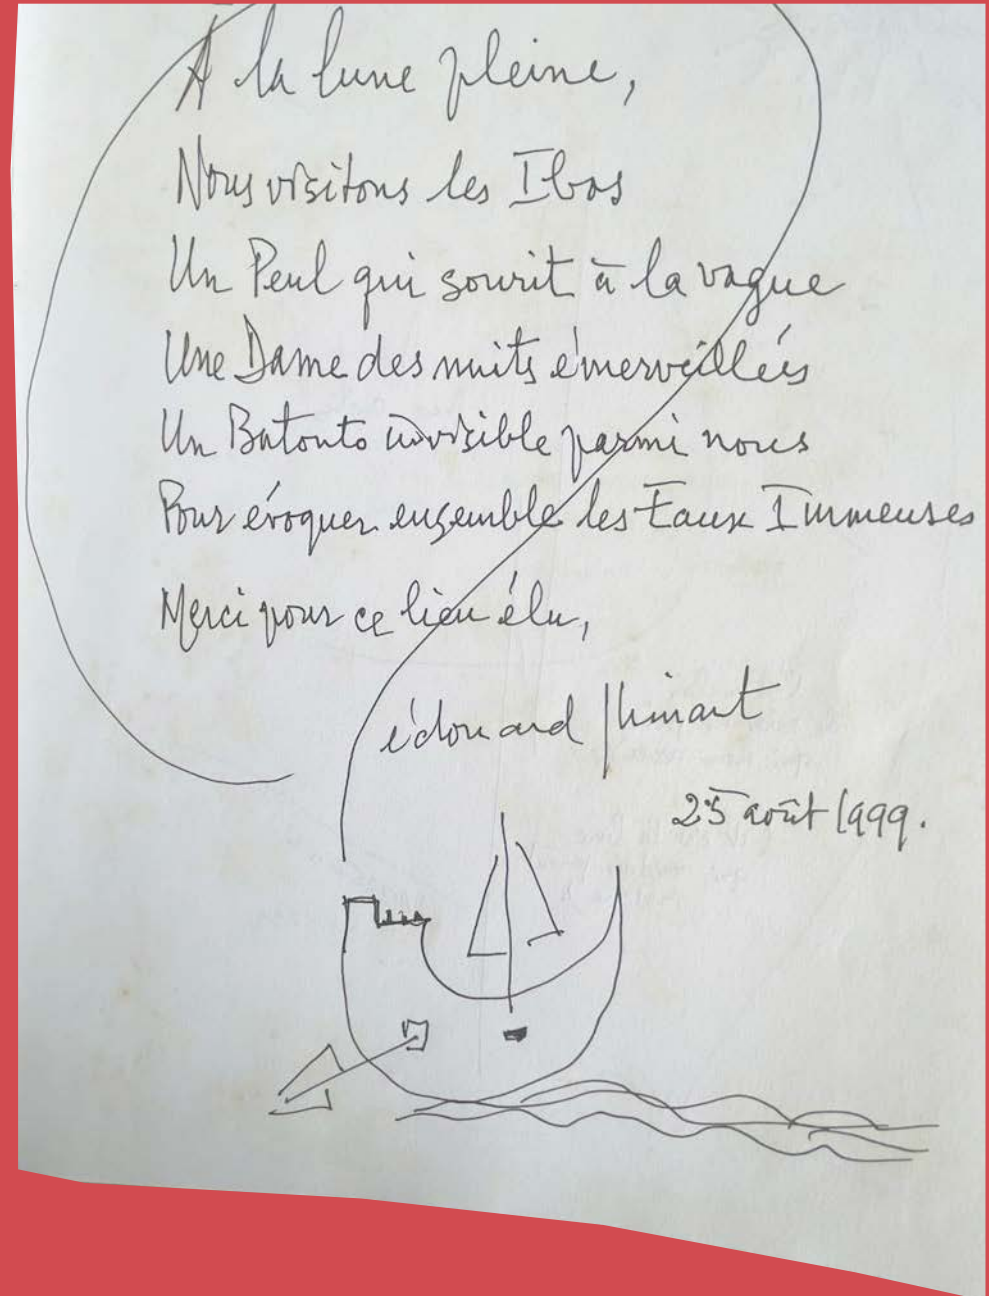 À la lune pleine,
Nous visitons les Ibos
Un Peul qui sourit à la vague
Une Dame des nuits émerveillées
Un Batouto invisible parmi nous
Pour évoquer ensemble les Eaux Immenses
Merci pour ce lieu élu,
édouard glissant
25 août 1999.